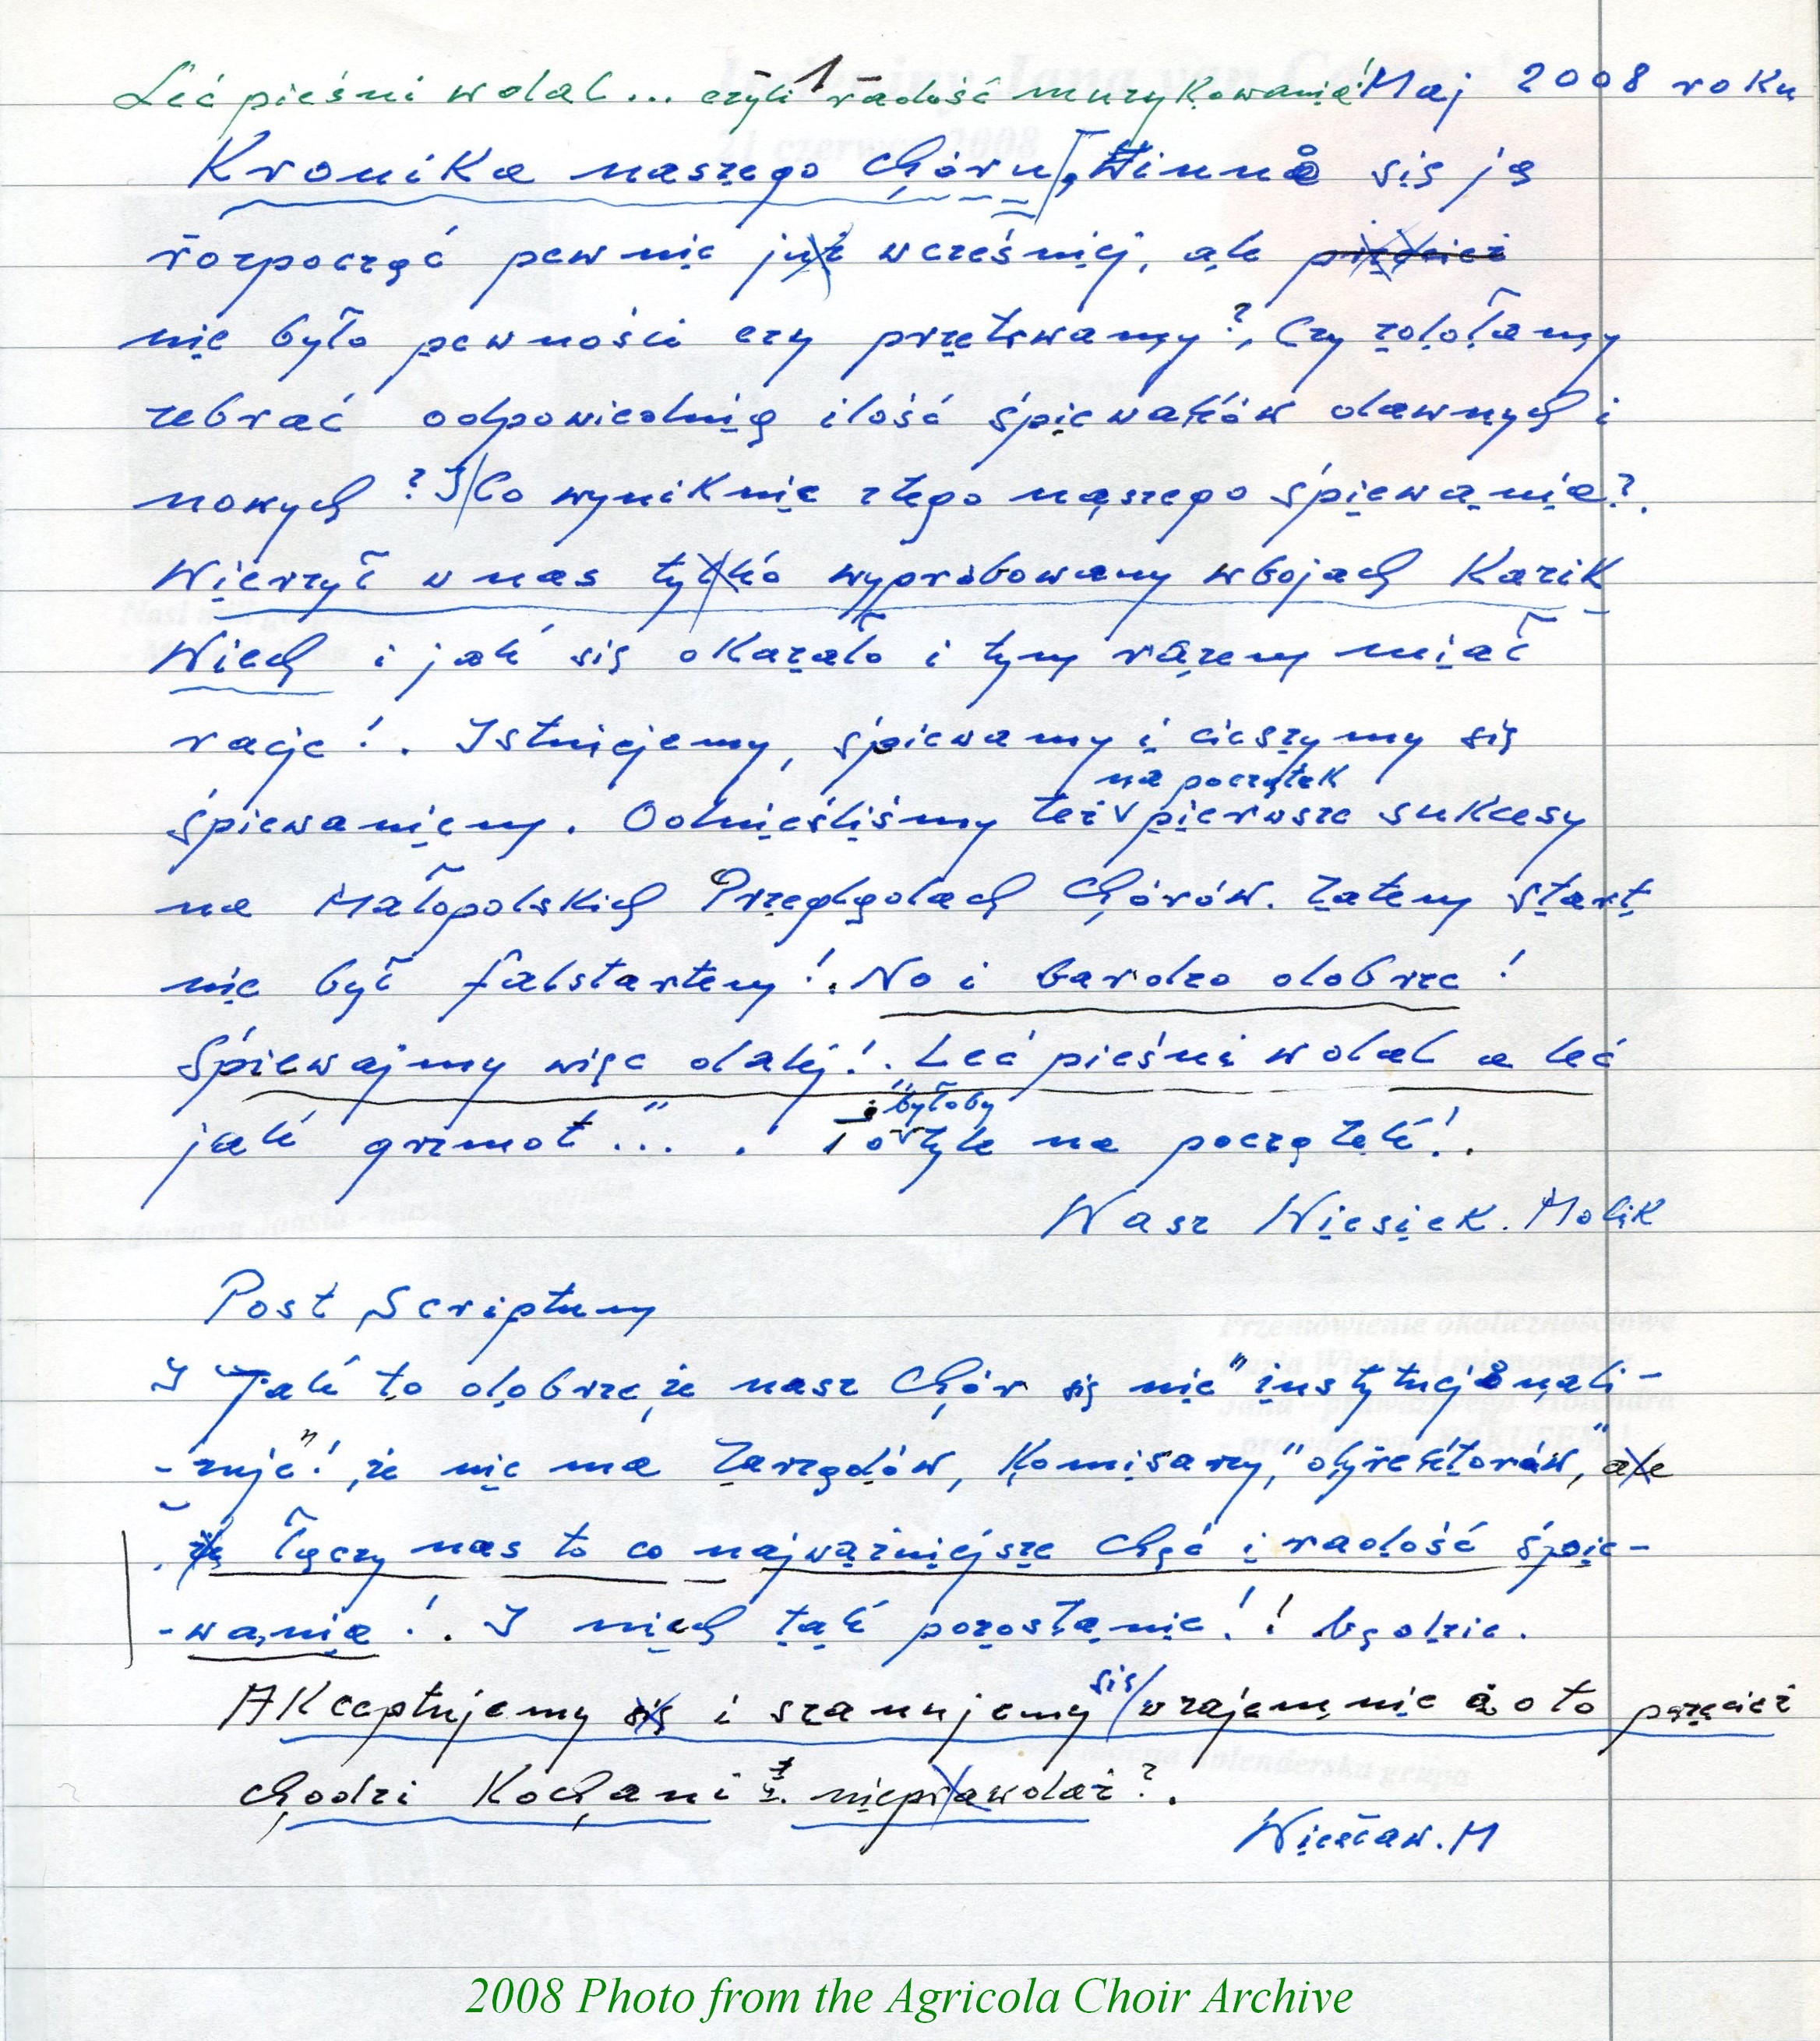 1
Leć pieśni w dal... czyli radość muzykowania! Maj 2008 roku
Kronika naszego Chóru, Winna się ją
rozpocząć pewnie już wcześniej, ale
nie było pewności czy przetrwamy?, Czy zdołamy
zebrać odpowiednią ilość śpiewaków dawnych i
nowych? I Co wyniknie z tego naszego śpiewania?.
Wierzył w nas tylko wypróbowany w bojach Kazik
Wiech i jak się okazało i tym razem miał
racje!. Istniejemy, śpiewamy i cieszymy się
na początek
śpiewaniem. Odnieśliśmy też v pierwsze sukcesy
na Małopolskich Przeglądach Chórów. Zatem start
nie był falstartem!. No i bardzo dobrze!
Śpiewajmy więc dalej!. "Leć pieśni w dal a leć
byłoby
jak grzmot"... . To v tyle na początek!.
Wasz Wiesiek. Molik
Post Scriptum
I Jak to dobrze, że nasz Chór się nie "instytucjonali-
-zuje"!, że nie ma Zarządów, Komisarzy, "dyrektorów", ale
, że łączy nas to co najważniejsze Chęć i radość śpie-
-wania!. I niech tak pozostanie!! będzie.
się
Akceptujemy się i szanujemy wzajemnie a o to przecież
chodzi Kochani nieprawdaż?.
Wiesław. M
2008 Photo from the Agricola Choir Archive